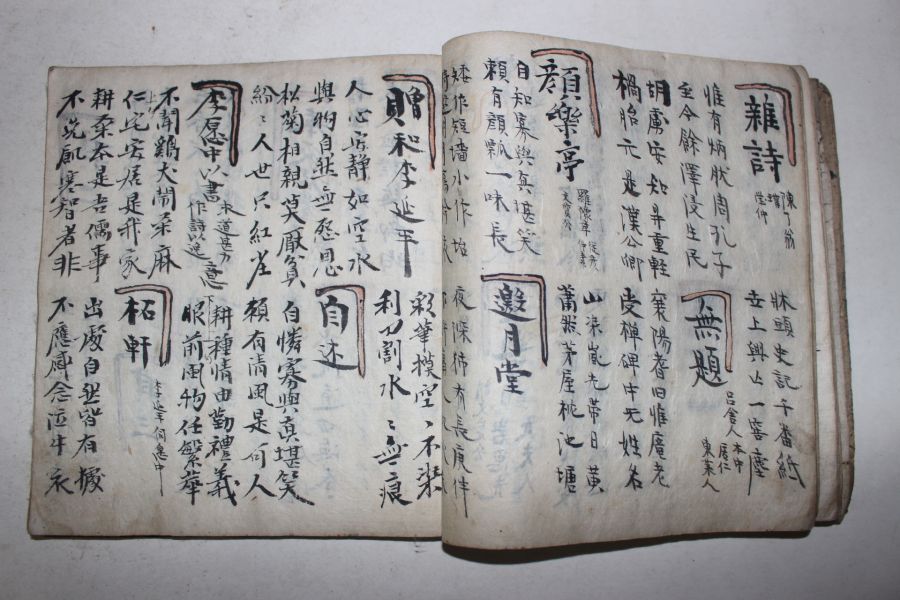 雜詩
陳了翁
瓘
瑩仲
牀頭史記千番紙
世上興亡一窖塵
惟有炳肰周孔子
至今餘澤浸生民
無題
呂舍人
本中
居仁
東萊人
胡虜安知鼎重輕
禍胎元是漢公卿
襄陽耆旧惟龐老
受禪碑中无姓名
顔樂亭
羅豫章 從彦
文質公 仲素
山染嵐光帶日黄
蕭然茅屋枕池塘
自知寡與真堪笑
賴有顔瓢一味長
邀月堂
矮作短墻小作
夜深 有長庚伴
贈和李延平
彩筆模空〻不染
利刀割水〻無痕
人心安静如空水
與物自然無怨恩
自述
松菊相親莫厭貧
紛〻人世只紅
自憐寡與真堪笑
賴有清風是何人
李愿中以書
作詩以送
不聞鷄犬鬧桑麻
仁宅安居是我家
耕種情由勤禮義
眼前風物任繁華
耕桑本是吾儒事
不免飢寒智者非
柘軒
李延平侗愿中
出處自然皆有據
不應感念泣牛衣